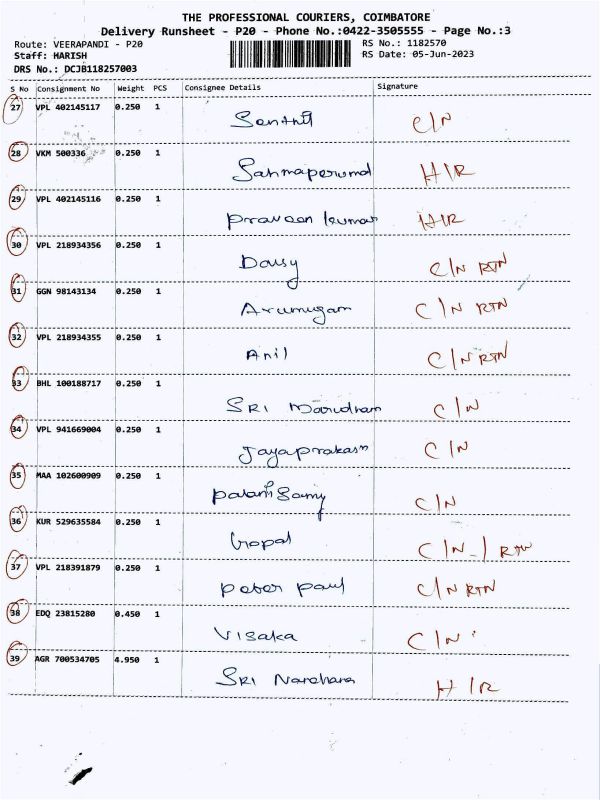 THE PROFESSIONAL COURIERS, COIMBATORE
Delivery Runsheet - P20 - Phone No.:0422-3505555 - Page No.:3
Route: VEERAPANDI - P20 RS No.: 1182570
Staff: HARISH RS Date: 05-Jun-2023
DRS No.: DCJB118257003
S No Consignment No Weight PCS Consignee Details Signature
27 VPL 402145117 0.250 1 Senthil C/N
28 VKM 500336 0.250 1 H/R
29 VPL 402145116 0.250 1 Praveen kumar H/R
30 VPL 218934356 0.250 1 Daisy C/N RTN
31 GGN 98143134 0.250 1 Arumugam C/N RTN
32 VPL 218934355 0.250 1 Anil C/N RTN
33 BHL 100188717 0.250 1 SRI Marudham C/N
34 VPL 941669004 0.250 1 Jayaprakash C/N
35 MAA 102600909 0.250 1 PalaniSamy C/N
36 KUR 529635584 0.250 1 Gopal C/N-/RTN
37 VPL 218391879 0.250 1 Peter Paul C/N RTN
38 EDQ 23815280 0.450 1 Visaka C/N
39 AGR 700534705 4.950 1 SRI H/R